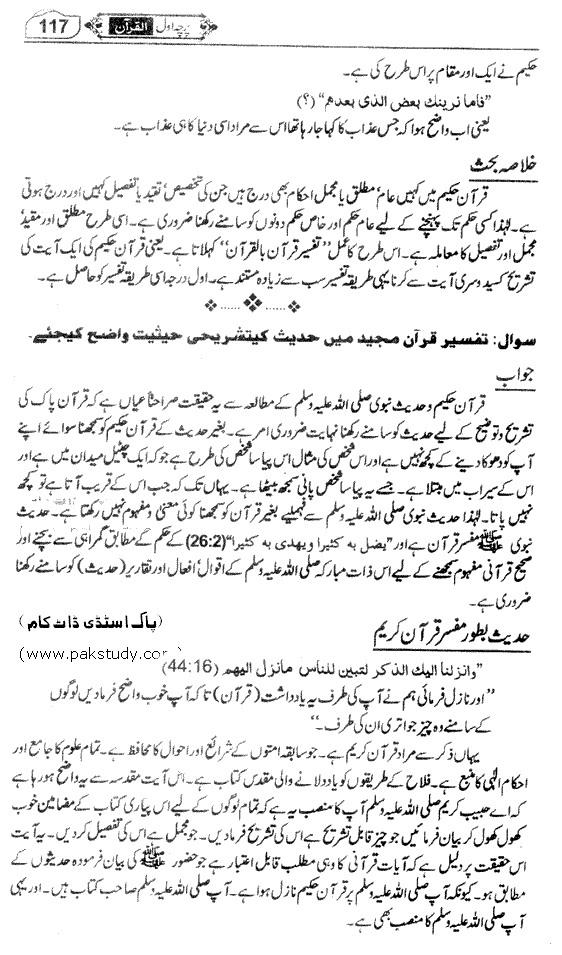 117 القرآن پرچہ اول
حکیم نے ایک اور مقام پر اس طرح کی ہے۔
"فاما نرينك بعض الذى بعدهم" (؟)
یعنی اب واضح ہوا کہ جس عذاب کا کہا جا رہا تھا اس سے مراد اسی دنیا کا ہی عذاب ہے۔
خلاصہ بحث
قرآن حکیم میں کہیں عام' مطلق یا مجمل احکام بھی درج ہیں جن کی تخصیص' تقید یا تفصیل کہیں اور درج ہوتی
ہے۔ لہٰذا کسی حکم تک پہنچنے کے لیے عام حکم اور خاص حکم دونوں کو سامنے رکھنا ضروری ہے۔ اسی طرح مطلق اور مقید'
مجمل اور تفصیل کا معاملہ ہے۔ اس طرح کا عمل "تفسیر قرآن بالقرآن" کہلاتا ہے۔ یعنی قرآن حکیم کی ایک آیت کی
تشریح کسید وسری آیت سے کرنا یہی طریقہ تفسیر سب سے زیادہ مستند ہے۔ اول درجہ اسی طریقہ تفسیر کو حاصل ہے۔
سوال: تفسیر قرآن مجید میں حدیث کیتشریحی حیثیت واضح کیجئے۔
جواب
قرآن حکیم و حدیث نبوی صلی اللہ علیہ وسلم کے مطالعہ سے یہ حقیقت صراحتاً عیاں ہے کہ قرآن پاک کی
تشریح و توضیح کے لیے حدیث کو سامنے رکھنا نہایت ضروری امر ہے۔ بغیر حدیث کے قرآن حکیم کو سمجھنا سوائے اپنے
آپ کو دھوکا دینے کے کچھ نہیں ہے اور اس شخص کی مثال اس پیاسا شخص کی طرح ہے جو کہ ایک چٹیل میدان میں ہے اور
اس کے سیراب میں مبتلا ہے۔ جسے یہ پیاسا شخص پانی سمجھ بیٹھا ہے۔ یہاں تک کہ جب اس کے قریب آتا ہے تو کچھ
نہیں پاتا۔ لہٰذا حدیث نبوی صلی اللہ علیہ وسلم سے بغیر قرآن کو سمجھنا کوئی معنی و مفہوم نہیں رکھتا ہے۔ حدیث
نبوی ﷺ مفسر قرآن ہے اور "يضل به كثيرا ويهدى به كثيرا" (26:2) کے حکم کے مطابق گمراہی سے بچنے اور
صحیح قرآنی مفہوم سمجھنے کے لیے اس ذات مبارکہ صلی اللہ علیہ وسلم کے اقوال' افعال اور تقاریر (حدیث) کو سامنے رکھنا
ضروری ہے۔
حدیث بطور مفسر قرآن کریم (پاک اسٹڈی ڈاٹ کام)
(www.pakstudy.com)
"وانزلنا اليك الذكر لتبين للناس مانزل اليهم (44:16)
"اور نازل فرمائی ہم نے آپ کی طرف یہ یادداشت (قرآن) تاکہ آپ خوب واضح فرمادیں لوگوں
کے سامنے وہ چیز جو اتری ان کی طرف۔"
یہاں ذکر سے مراد قرآن کریم ہے۔ جو سابقہ امتوں کے شرائع اور احوال کا محافظ ہے۔ تمام علوم کا جامع اور
احکام الٰہی کا منبع ہے۔ فلاح کے طریقوں کو یاد دلانے والی مقدس کتاب ہے۔ اس آیت مقدسہ سے یہ واضح ہو رہا ہے
کہ اے حبیب کریم صلی اللہ علیہ وسلم آپ کا منصب یہ ہے کہ تمام لوگوں کے لیے اس پیاری کتاب کے مضامین خوب
کھول کھول کر بیان فرمائیں جو چیز قابل تشریح ہے اس کی تشریح فرمادیں۔ جو مجمل ہے اس کی تفصیل کر دیں۔ یہ آیت
اس حقیقت پر دلیل ہے کہ آیات قرآنی کا وہی مطلب قابل اعتبار ہے جو حضور ﷺ کی بیان فرمودہ حدیثوں کے
مطابق ہو۔ کیونکہ آپ صلی اللہ علیہ وسلم پر قرآن حکیم نازل ہوا ہے۔ آپ صلی اللہ علیہ وسلم صاحب کتاب ہیں۔ اور یہی
آپ صلی اللہ علیہ وسلم کا منصب بھی ہے۔